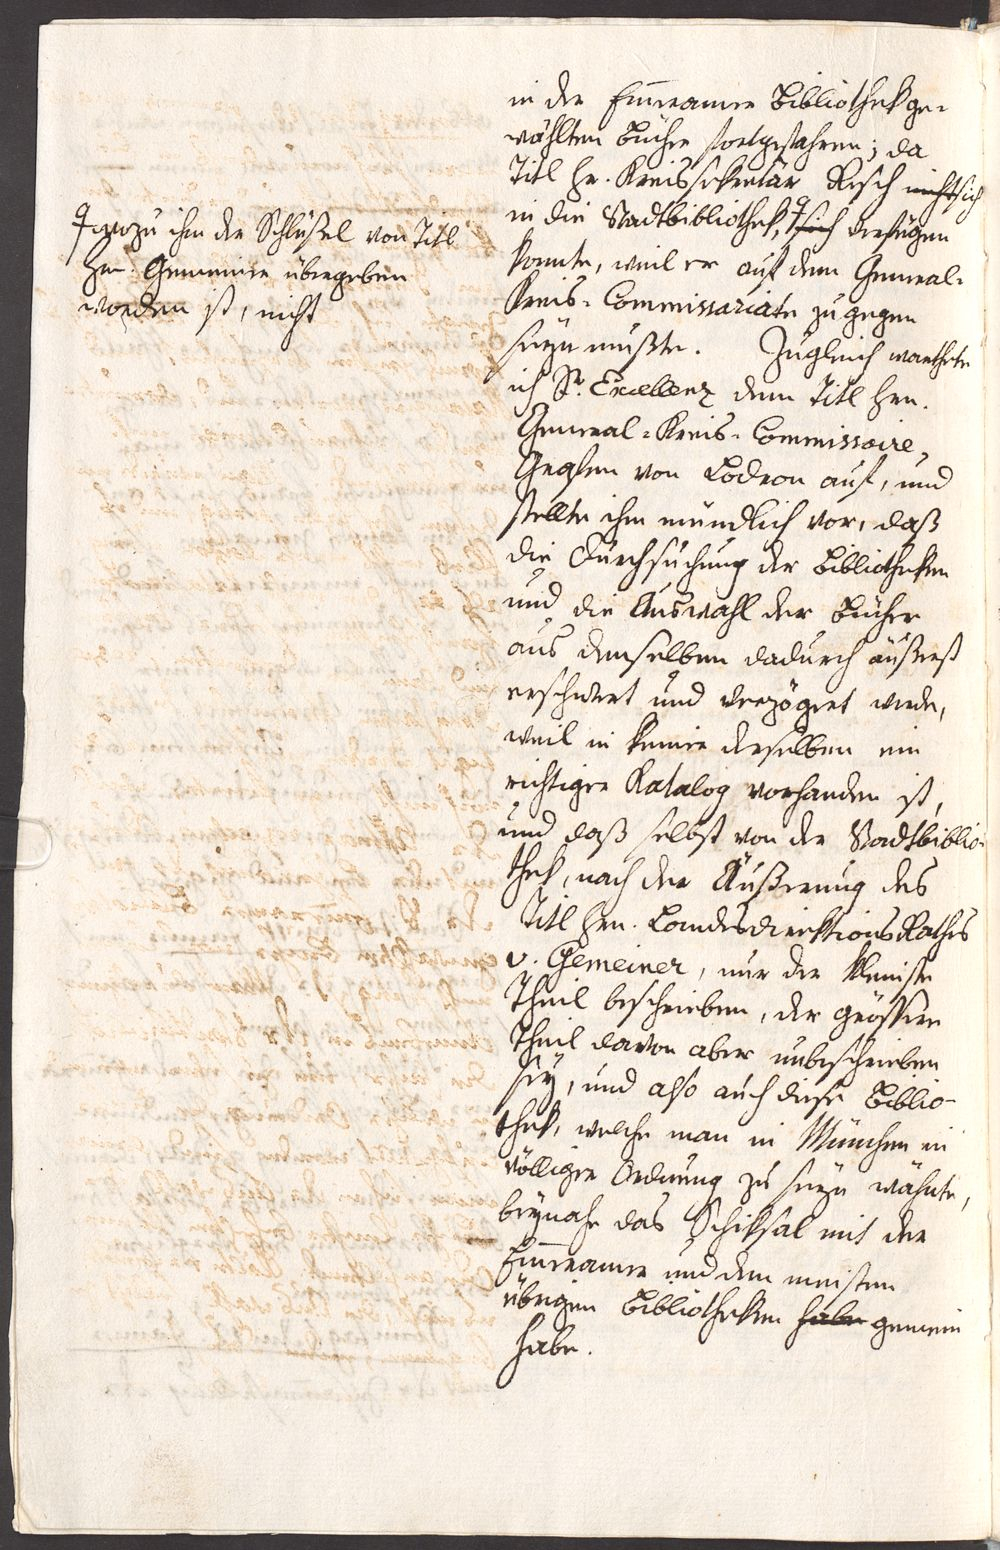 in der Emmeramer Bibliothek ge-
wählten Bücher fortgefahren; da
Titl Hr. Kreissekretär Resch nicht sich
in die Stadtbibliothek, sich verfügen
konnte, weil er auf dem General-
Kreis-Commissariate zugegen
seyn mußte. Zugleich warthete
ich Sr. Excellenz dem Titl Hrn.
General-Kreis-Commissaire,
Grafen von Lodron auf, und
stellte ihm mündlich vor, daß
die Durchsuchung der Bibliotheken
und die Auswahl der Bücher
aus denselben dadurch äußerst
erschwert und verzögert werde,
weil in keiner derselben ein
richtiger Katalog vorhanden ist,
und daß selbst von der Stadtbiblio-
thek, nach der Äußerung des
Titl Hrn. LandesdirektionsRathes
v. Gemeiner, nur der kleinste
Theil beschrieben, der größere
Theil davon aber unbeschrieben
sey, und also auch diese Biblio-
thek, welche man in München in
völliger Ordnung zu seyn wähnte,
beynahe das Schiksal mit der
Emmeramer und den meisten
übrigen Bibliotheken habe gemein
habe.
wozu ihm der Schlüßel von Titl
Hrn. Gemeiner übergeben
worden ist, nicht